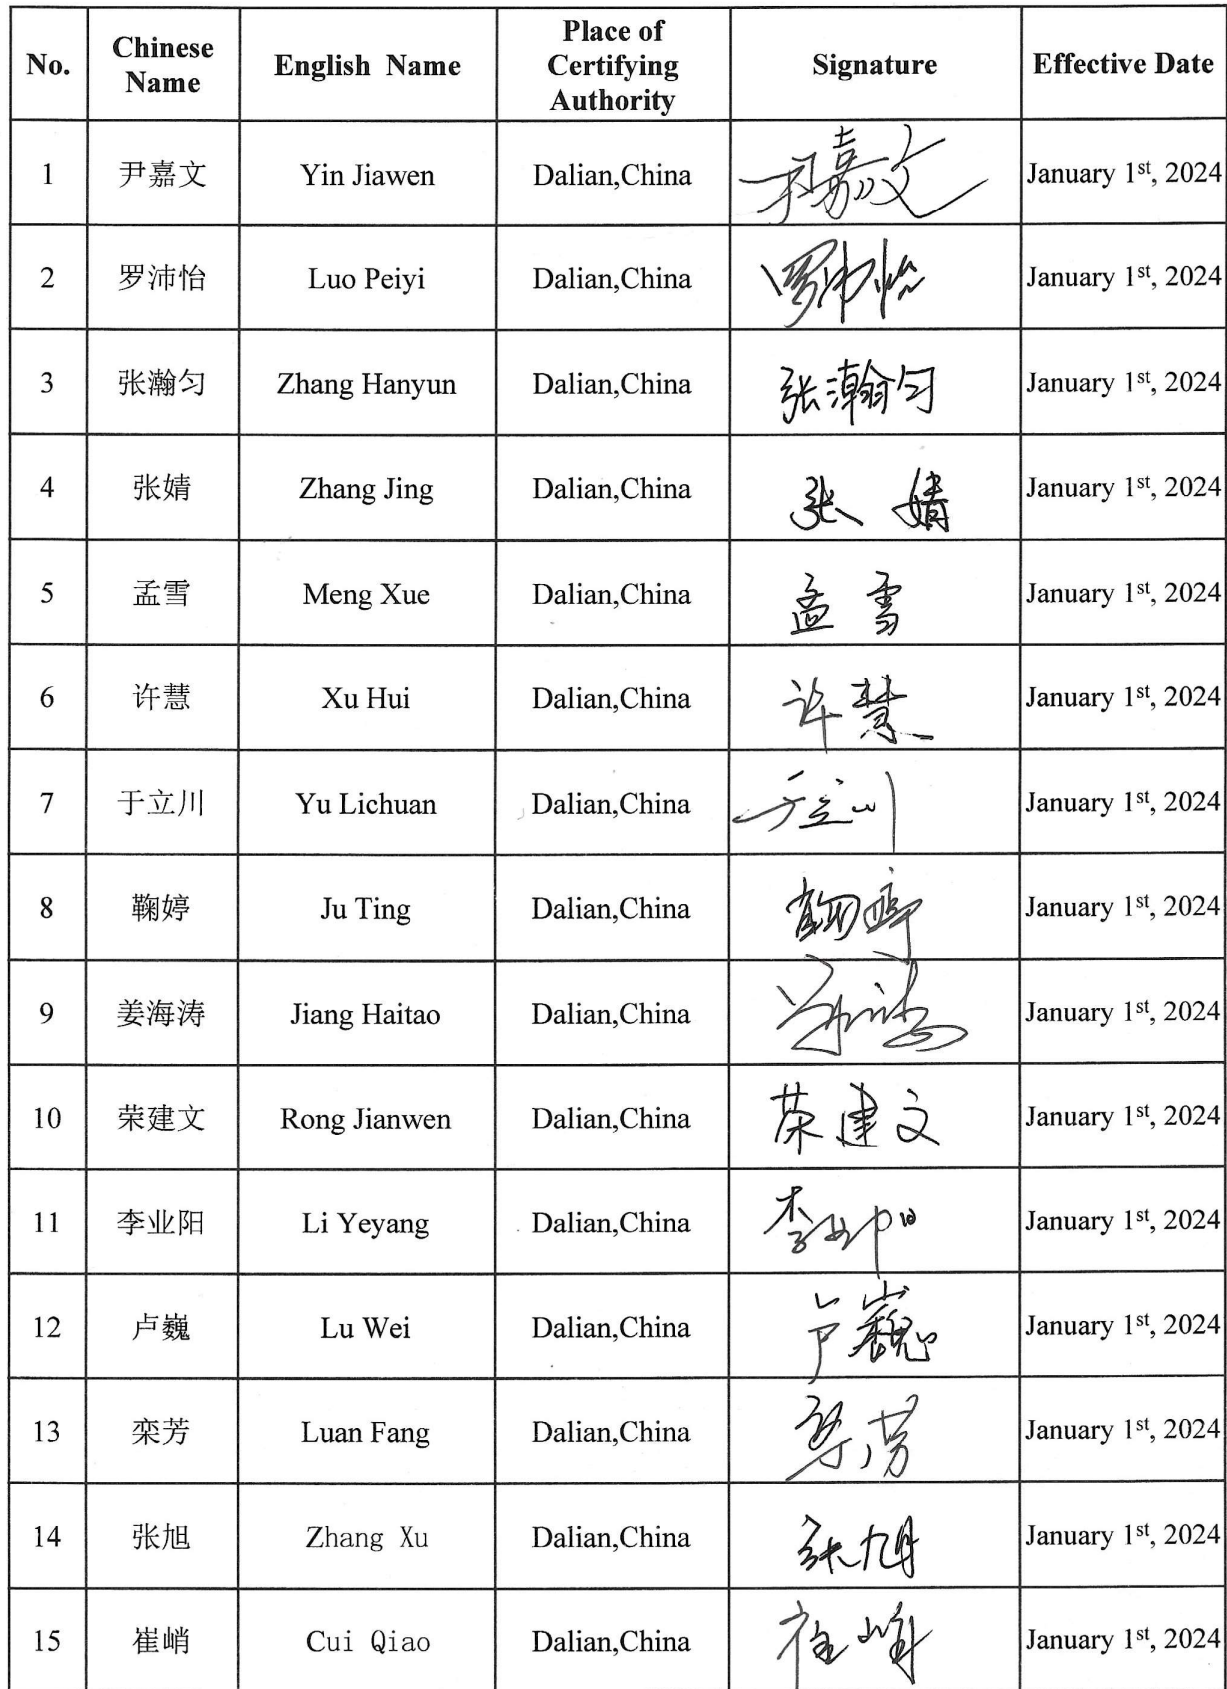 No. Chinese Name English Name Place of Certifying Authority Signature Effective Date
1 尹嘉文 Yin Jiawen Dalian,China 尹嘉文 January 1st, 2024
2 罗沛怡 Luo Peiyi Dalian,China 罗沛怡 January 1st, 2024
3 张瀚匀 Zhang Hanyun Dalian,China 张瀚匀 January 1st, 2024
4 张婧 Zhang Jing Dalian,China 张婧 January 1st, 2024
5 孟雪 Meng Xue Dalian,China 孟雪 January 1st, 2024
6 许慧 Xu Hui Dalian,China 许慧 January 1st, 2024
7 于立川 Yu Lichuan Dalian,China 于立川 January 1st, 2024
8 鞠婷 Ju Ting Dalian,China 鞠婷 January 1st, 2024
9 姜海涛 Jiang Haitao Dalian,China 姜海涛 January 1st, 2024
10 荣建文 Rong Jianwen Dalian,China 荣建文 January 1st, 2024
11 李业阳 Li Yeyang Dalian,China 李业阳 January 1st, 2024
12 卢巍 Lu Wei Dalian,China 卢巍 January 1st, 2024
13 栾芳 Luan Fang Dalian,China 栾芳 January 1st, 2024
14 张旭 Zhang Xu Dalian,China 张旭 January 1st, 2024
15 崔峭 Cui Qiao Dalian,China 崔峭 January 1st, 2024